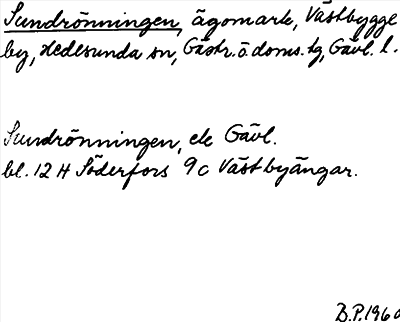 Sundrönningen, ägomark, Västbygge
by, Hedesunda sn, Gästr. ö. doms. tg, Gävl. l.
Sundrönningen, ek Gävl.
bl. 12 H Söderfors 9c Västbyängar.
B.P. 1960